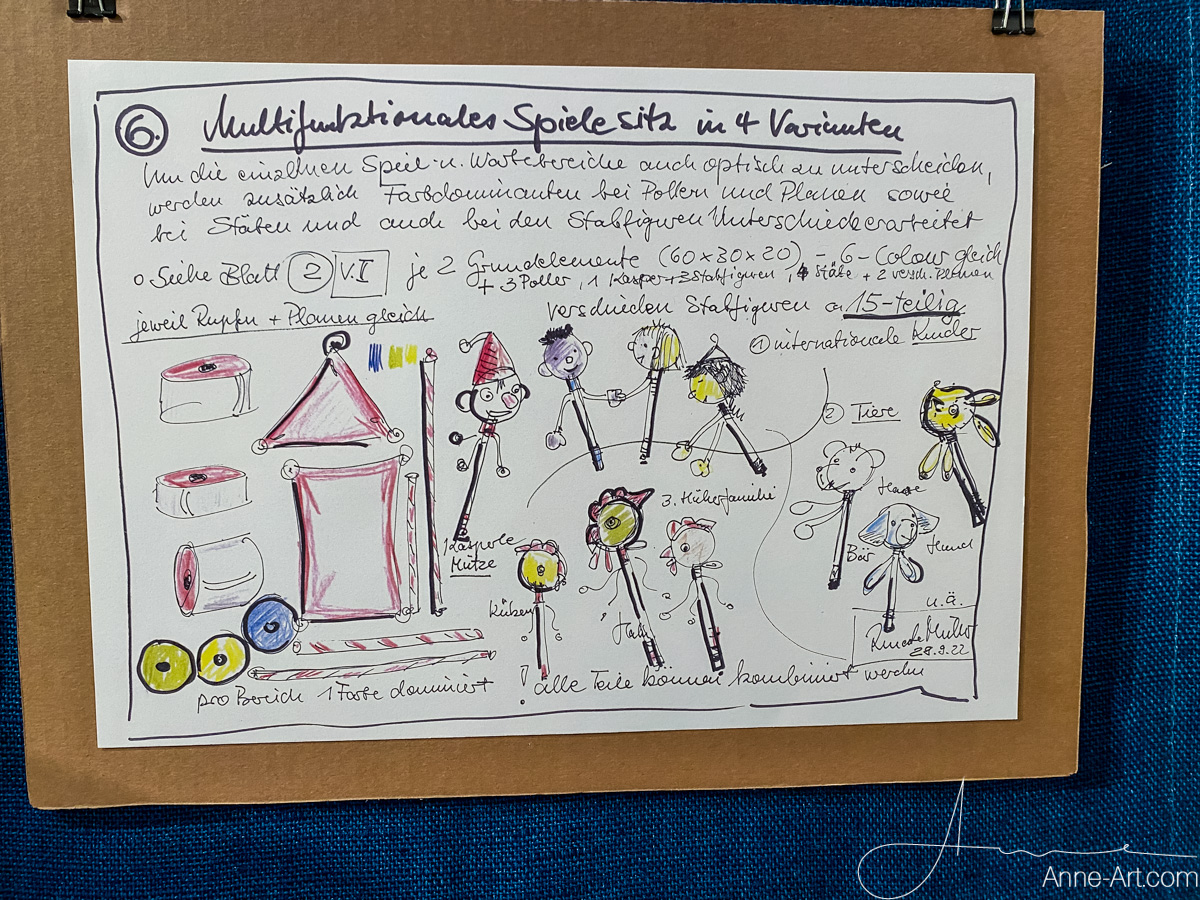 6. Multifunktionales Spielesitz in 4 Varianten
Um die einzelnen Spiel- u. Wartebereiche auch optisch zu unterscheiden,
werden zusätzlich Farbdominanten bei Pollern und Planen sowie
bei Stäben und auch bei den Stabfiguren Unterschiede erarbeitet
o Siehe Blatt 2 V. I je 2 Grundelemente (60x30x20) - 6-Colour gleich
+ 3 Poller, 1 Kasper + 3 Stabfiguren, 4 Stäbe + 2 versch. Planen
verschieden Stabfiguren 15-teilig
jeweil + Planen gleich
① internationale Kinder
2) Tiere
3. Hühnerfamilie
Hase
1 Kasperle
Mütze
Bär
Hund
Küken
Hahn
u.ä.
28.9.22
pro Bereich 1 Farbe dominiert
! alle Teile können kombiniert werden
Anne
Anne-Art.com